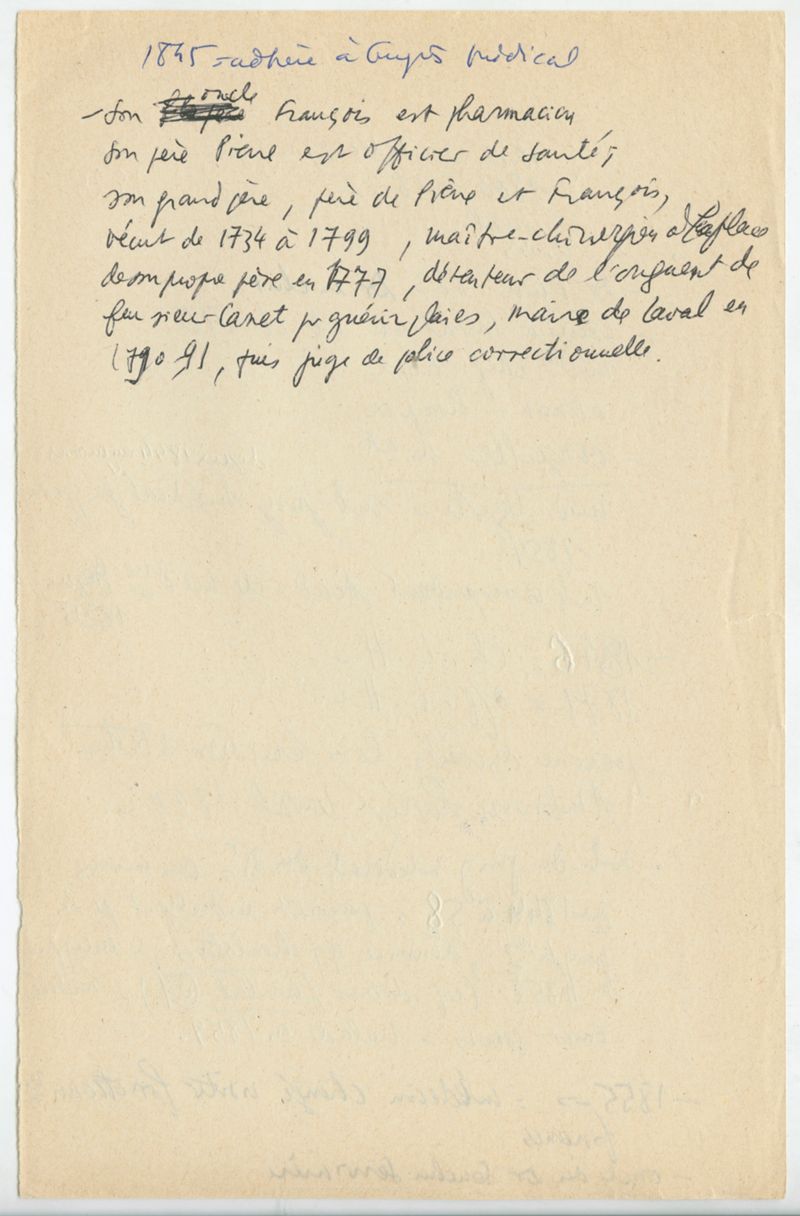 1845 = adhère à Congrès médical
- Son oncle François est pharmacien
Son père Pierre est officier de santé,
son grand père, père de Pierre et François,
vécut de 1734 à 1799, maître-chirurgien à la place
de son propre père en 1777, détenteur de l'onguent de
feu sieur Canet pr guérir plaies, maire de Laval en
1790 91, puis juge de police correctionnelle.